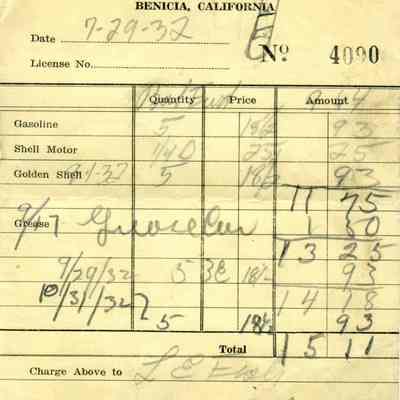 BENICIA, CALIFORNIA
Date 7-29-32
No 4090
License No.
Quantity Price Amount
Gasoline 5 18½ 93
Shell Motor 25 25
Golden Shell 9-1-32 5 18½ 93
11 75
Grease 9/17 1 50
13 25
9/29/32 5 18½ 93
14 18
10/31/32 5 18½ 93
Total 15 11
Charge Above to L E